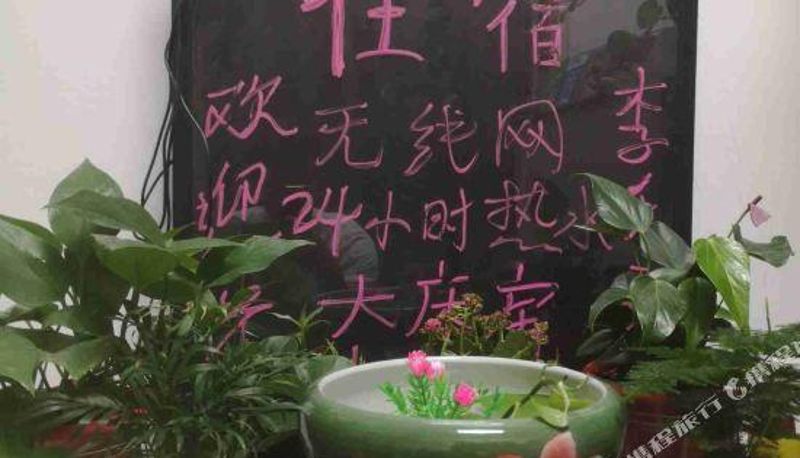 住宿
欢迎
无线网
24小时热水
大床室
李
携程旅行